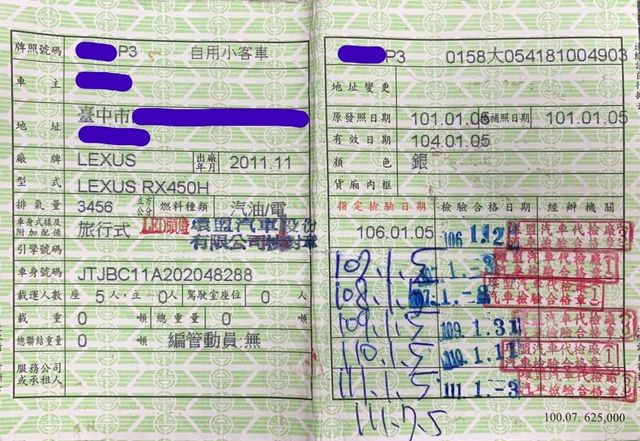 牌照號碼 P3 自用小客車
車主
地址 臺中市
廠牌 LEXUS 出廠年月 2011.11
型式 LEXUS RX450H
排氣量 3456 立方公分 燃料種類 汽油/電
車身式樣及附加配備 旅行式 LED頭燈 環盟汽車股份
有限公司
引擎號碼
車身號碼 JTJBC11A202048288
載運人數 座 5 人,立 0 人 駕駛室座位 0 人
載重 0 噸 總重量 0 噸
總聯結重量 0 噸 編管動員:無
服務公司或承租人
P3 0158大054181004903
地址變更
原發照日期 101.01.05 補照日期 101.01.05
有效日期 104.01.05
顏色 銀
貨廂內框
指定檢驗日期 檢驗合格日期 經辦機關
106.01.05 106.1.12 環盟汽車代檢廠
汽車檢驗合格章③
107.1.5 1.-3 環盟汽車代檢廠①
108.1.5 1.-3 汽車檢驗合格章
109.1.5 109.1.31 環盟汽車代檢廠
汽車檢驗合格章③
110.1.5 110.1.11 環盟汽車代檢廠①
汽車檢驗合格章
111.1.5 111.1.-3 環盟汽車代檢廠
汽車檢驗合格章③
111.7.5
100.07. 625,000